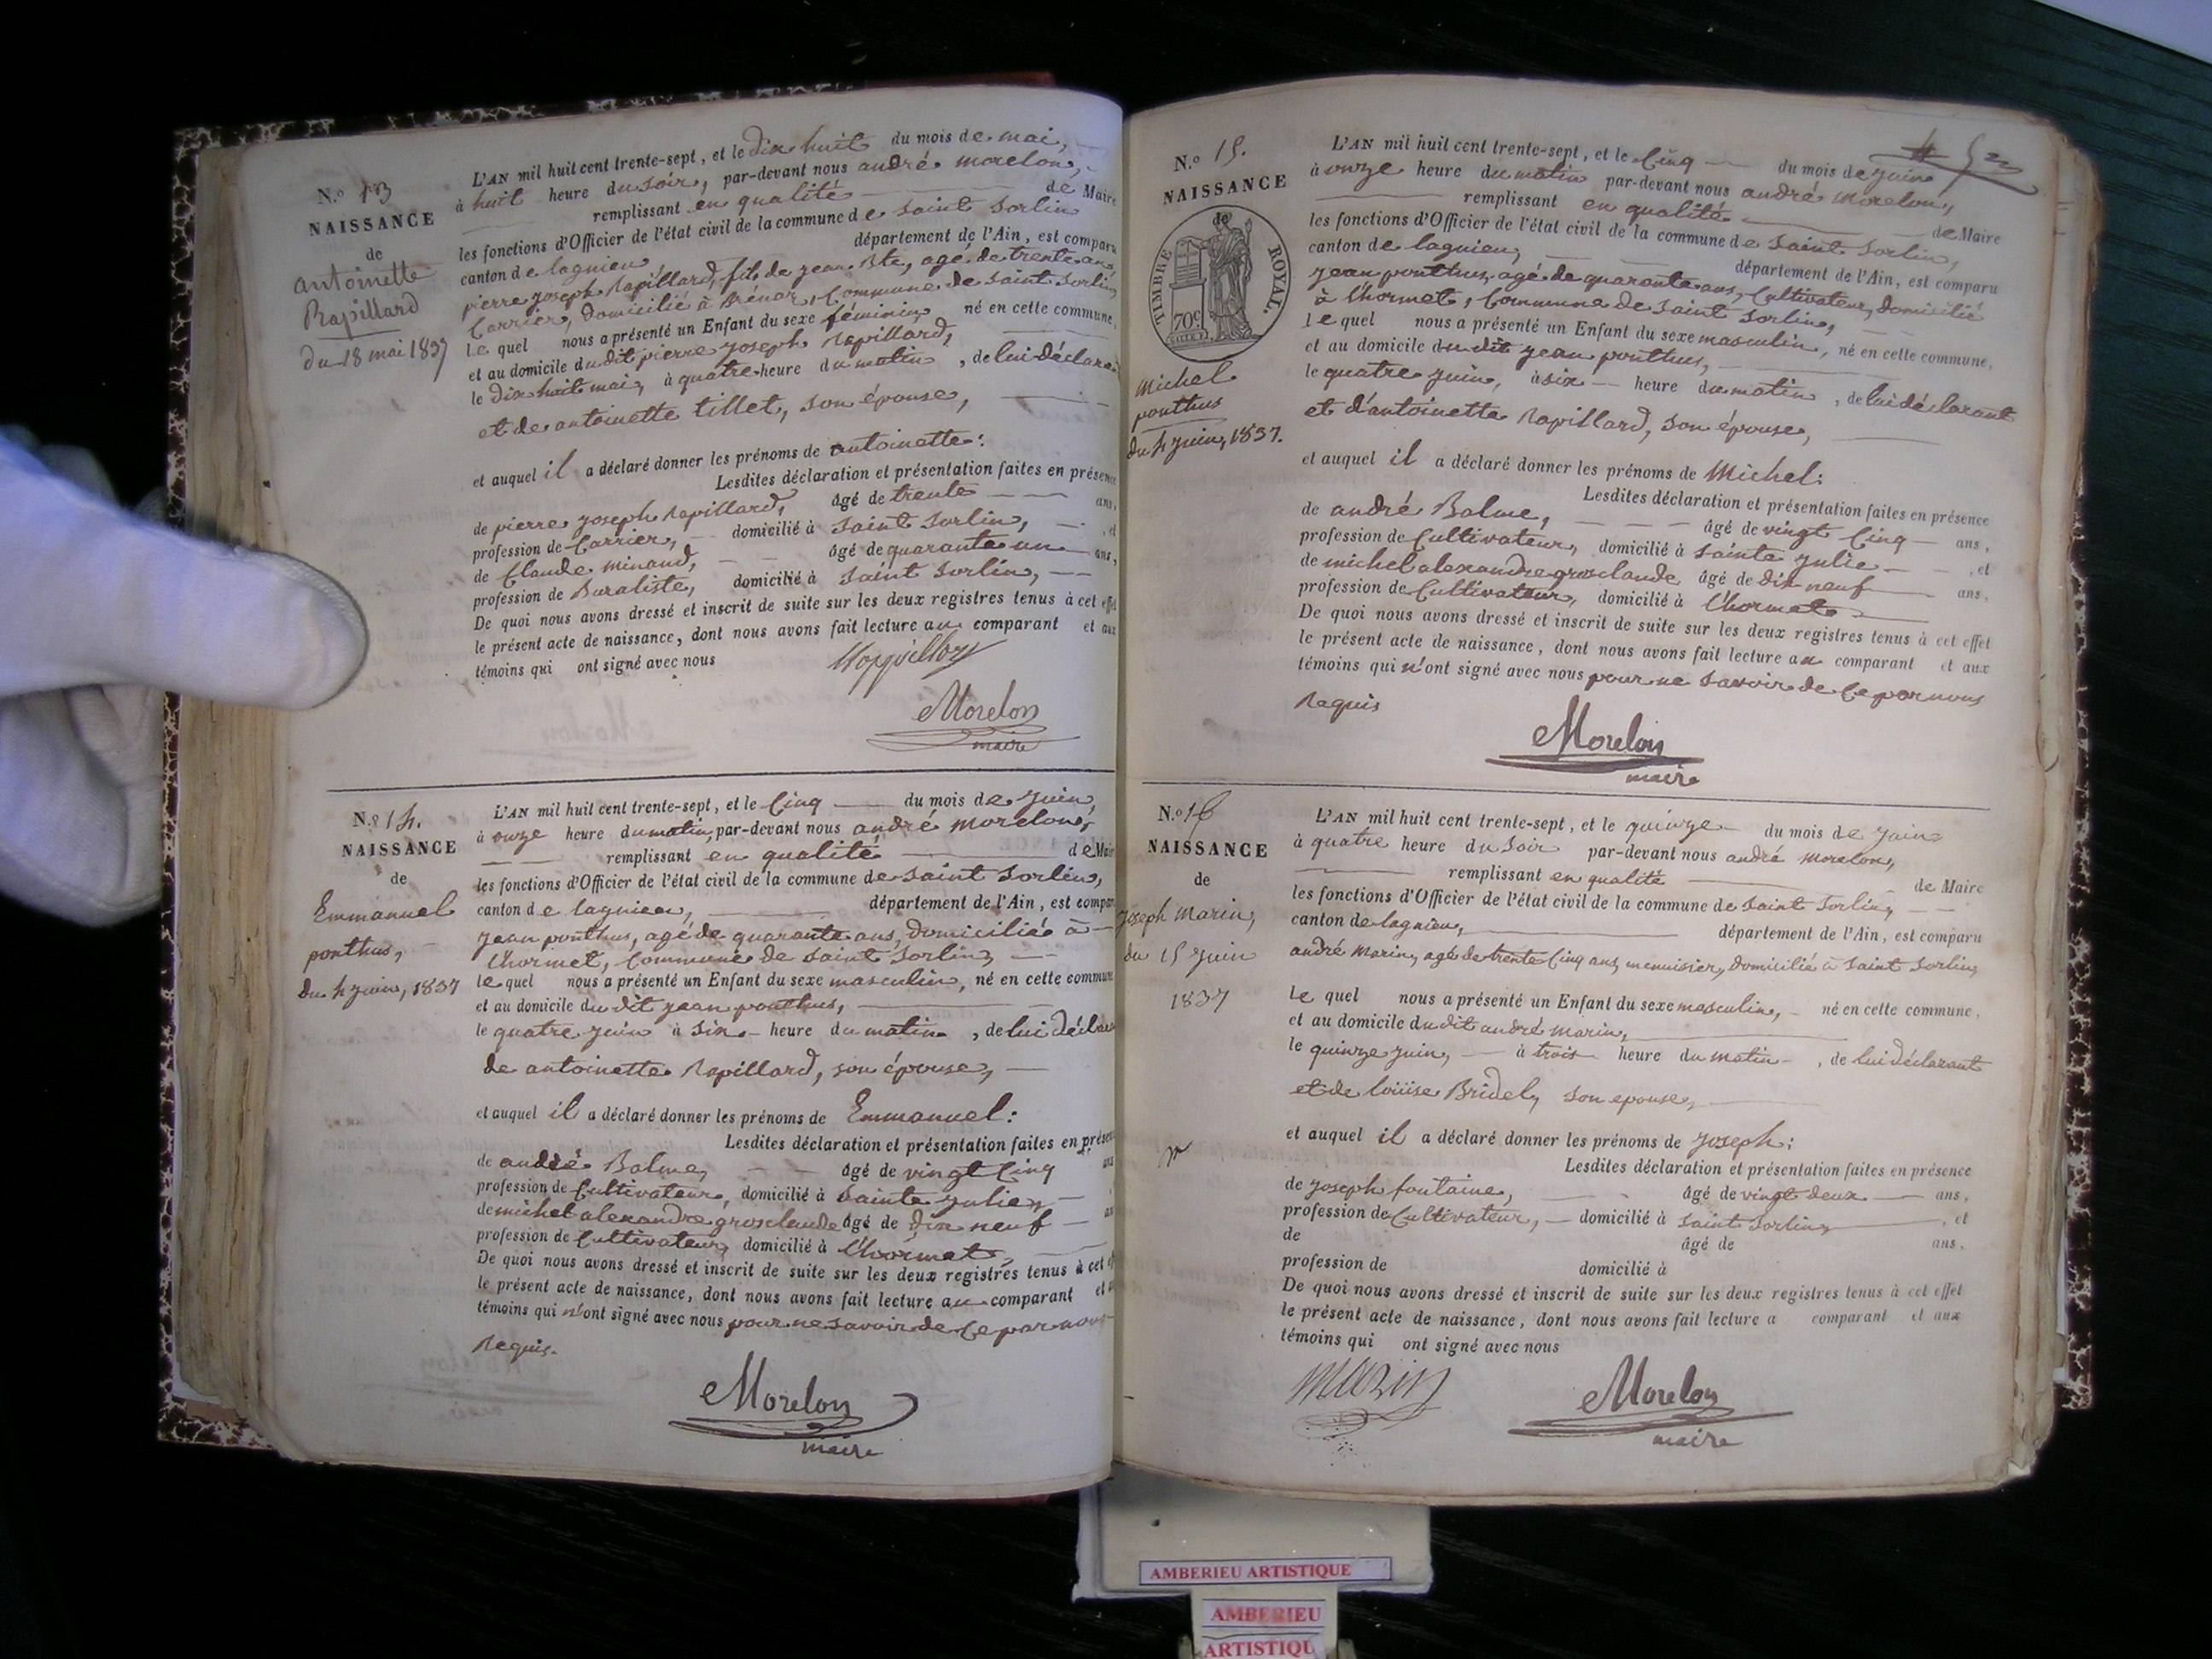 N.o 13
NAISSANCE
de
antoinette
Rapillard
du 18 mai 1837
L'AN mil huit cent trente-sept, et le dix huit du mois de mai,
à huit heure du soir, par-devant nous andré morelon,
remplissant en qualité de Maire
les fonctions d'Officier de l'état civil de la commune de saint sorlin
canton de lagnieu département de l'Ain, est comparu
pierre joseph Rapillard, fils de jean Bte, agé de trente ans,
Carrier, domicilié à Commune de saint sorlin,
le quel nous a présenté un Enfant du sexe féminin né en cette commune,
et au domicile du dit pierre joseph Rapillard,
le dix huit mai, à quatre heure du matin, de lui déclarant
et de antoinette tillet, son épouse,
et auquel il a déclaré donner les prénoms de antoinette:
Lesdites déclaration et présentation faites en présence
de pierre joseph Rapillard, âgé de trente ans,
profession de Carrier, domicilié à saint sorlin, et
de Claude minand, âgé de quarante un ans,
profession de Buraliste, domicilié à saint sorlin,
De quoi nous avons dressé et inscrit de suite sur les deux registres tenus à cet effet
le présent acte de naissance, dont nous avons fait lecture au comparant et aux
témoins qui ont signé avec nous
Morelon
maire
N.o 14.
NAISSANCE
de
Emmanuel
ponthus,
du 4 juin, 1837
L'AN mil huit cent trente-sept, et le Cinq du mois de juin,
à onze heure du matin, par-devant nous andré morelon,
remplissant en qualité de Maire
les fonctions d'Officier de l'état civil de la commune de saint sorlin,
canton de lagnieu, département de l'Ain, est comparu
jean ponthus, agé de quarante ans, domicilié à
l'hormet, Commune de saint sorlin,
le quel nous a présenté un Enfant du sexe masculin, né en cette commune
et au domicile du dit jean ponthus,
le quatre juin à six heure du matin, de lui déclarant
de antoinette Rapillard, son épouse,
et auquel il a déclaré donner les prénoms de Emmanuel:
Lesdites déclaration et présentation faites en présence
de andré Balme, âgé de vingt Cinq ans
profession de Cultivateur, domicilié à sainte julie,
de michel alexandre grosclaude âgé de dix neuf ans
profession de Cultivateur, domicilié à l'hormet,
De quoi nous avons dressé et inscrit de suite sur les deux registres tenus à cet effet
le présent acte de naissance, dont nous avons fait lecture au comparant et aux
témoins qui n'ont signé avec nous pour ne savoir de Ce par nous
Requis.
Morelon
maire
N.o 15.
NAISSANCE
de
TIMBRE ROYAL.
70c
michel
ponthus
du 4 juin, 1837.
L'AN mil huit cent trente-sept, et le Cinq du mois de juin
à onze heure du matin par-devant nous andré morelon,
remplissant en qualité de Maire
les fonctions d'Officier de l'état civil de la commune de saint sorlin,
canton de lagnieu, département de l'Ain, est comparu
jean ponthus, agé de quarante ans, Cultivateur, domicilié
à l'hormet, Commune de saint sorlin,
le quel nous a présenté un Enfant du sexe masculin, né en cette commune,
et au domicile du dit jean ponthus,
le quatre juin, à six heure du matin, de lui déclarant
et d'antoinette Rapillard, son épouse,
et auquel il a déclaré donner les prénoms de Michel:
Lesdites déclaration et présentation faites en présence
de andré Balme, âgé de vingt Cinq ans,
profession de Cultivateur, domicilié à sainte julie, et
de michel alexandre grosclaude, âgé de dix neuf ans,
profession de Cultivateur, domicilié à l'hormet
De quoi nous avons dressé et inscrit de suite sur les deux registres tenus à cet effet
le présent acte de naissance, dont nous avons fait lecture au comparant et aux
témoins qui n'ont signé avec nous pour ne savoir de Ce par nous
Requis
Morelon
maire
N.o 16
NAISSANCE
de
joseph marin,
du 15 juin
1837
L'AN mil huit cent trente-sept, et le quinze du mois de juin
à quatre heure du soir par-devant nous andré morelon,
remplissant en qualité de Maire
les fonctions d'Officier de l'état civil de la commune de saint sorlin,
canton de lagnieu, département de l'Ain, est comparu
andré marin, agé de trente Cinq ans, menuisier, domicilié à saint sorlin,
le quel nous a présenté un Enfant du sexe masculin, né en cette commune,
et au domicile du dit andré marin,
le quinze juin, à trois heure du matin, de lui déclarant
et de loüise Bridel, son epouse,
et auquel il a déclaré donner les prénoms de joseph:
Lesdites déclaration et présentation faites en présence
de joseph fontaine, âgé de vingt deux ans,
profession de Cultivateur, domicilié à saint sorlin, et
de âgé de ans,
profession de domicilié à
De quoi nous avons dressé et inscrit de suite sur les deux registres tenus à cet effet
le présent acte de naissance, dont nous avons fait lecture a comparant et aux
témoins qui ont signé avec nous
marin
Morelon
maire
AMBERIEU ARTISTIQUE
AMBERIEU
ARTISTIQU